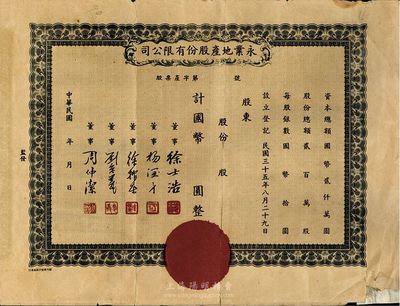 司公限有份股產地業永
股票產字第 號
資本總額國幣貳仟萬圓
股份總額貳百萬股
每股銀數國幣拾圓
設立登記 民國三十五年八月二十九日
股東
股份 股
計國幣 圓整
董事 徐士浩
董事
董事
董事
董事 周仲潔
中華民國 年 月 日